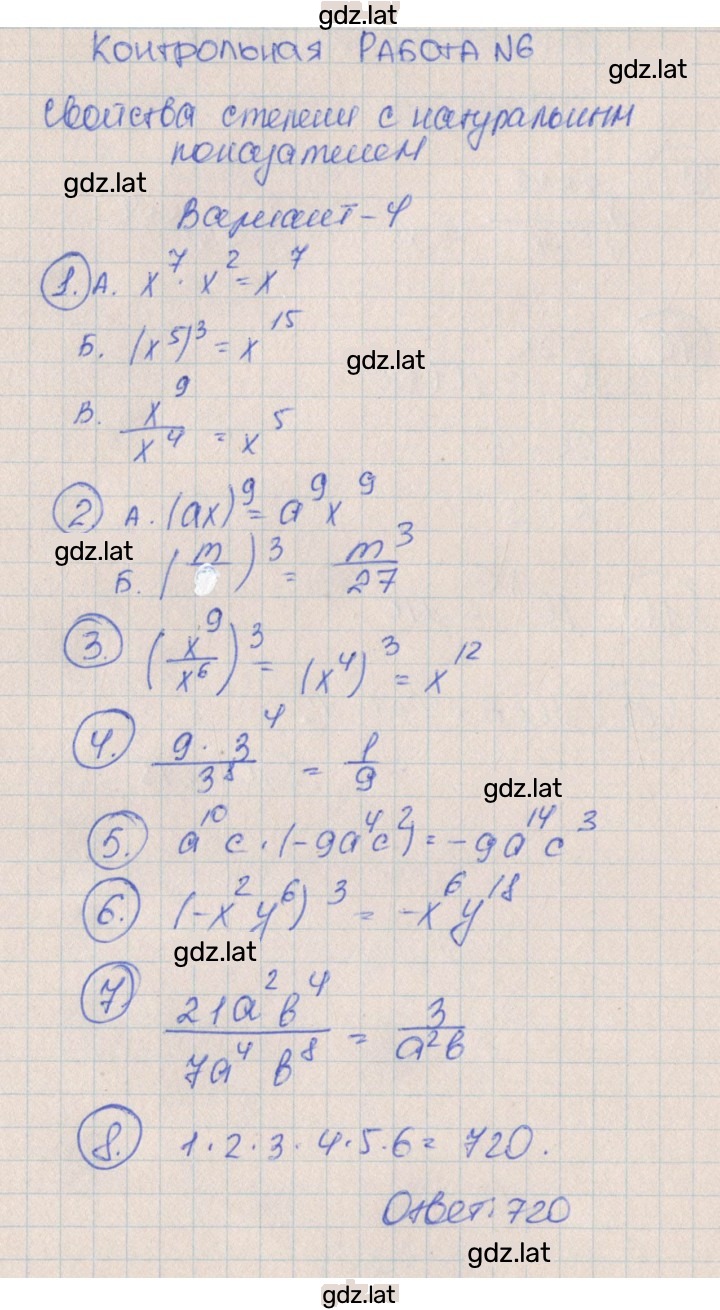 gdz.lat
Контрольная РАБОТА №6
gdz.lat
Свойства степени с натуральным
показателем
gdz.lat
Вариант-4
1. А. x⁷ · x² = x⁷
Б. (x⁵)³ = x¹⁵
gdz.lat
В. x⁹/x⁴ = x⁵
2 А. (ax)⁹ = a⁹x⁹
gdz.lat
Б. (m/ )³ = m³/27
3. (x⁹/x⁶)³ = (x⁴)³ = x¹²
4. 9 · 3⁴/3⁸ = 1/9
gdz.lat
5. a¹⁰c · (-9a⁴c²) = -9a¹⁴c³
6. (-x²y⁶)³ = -x⁶y¹⁸
gdz.lat
7. 21a²b⁴/7a⁴b⁸ = 3/a²b
8. 1·2·3·4·5·6 = 720.
Ответ: 720
gdz.lat
gdz.lat